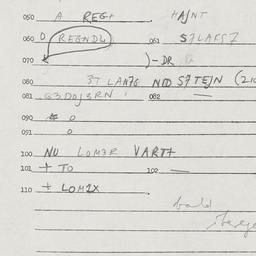 050 A REGT HAJNT
060 0 REGNDL 061 S7LAFS7
070 )-DR
080 3T LAN7G NID S7TEJN (21
081 G3D0J3RN 082 —
090 0
091 0
100 NU LOM3R VART+
101 + TO 102 —
110 + LOM2X
bald